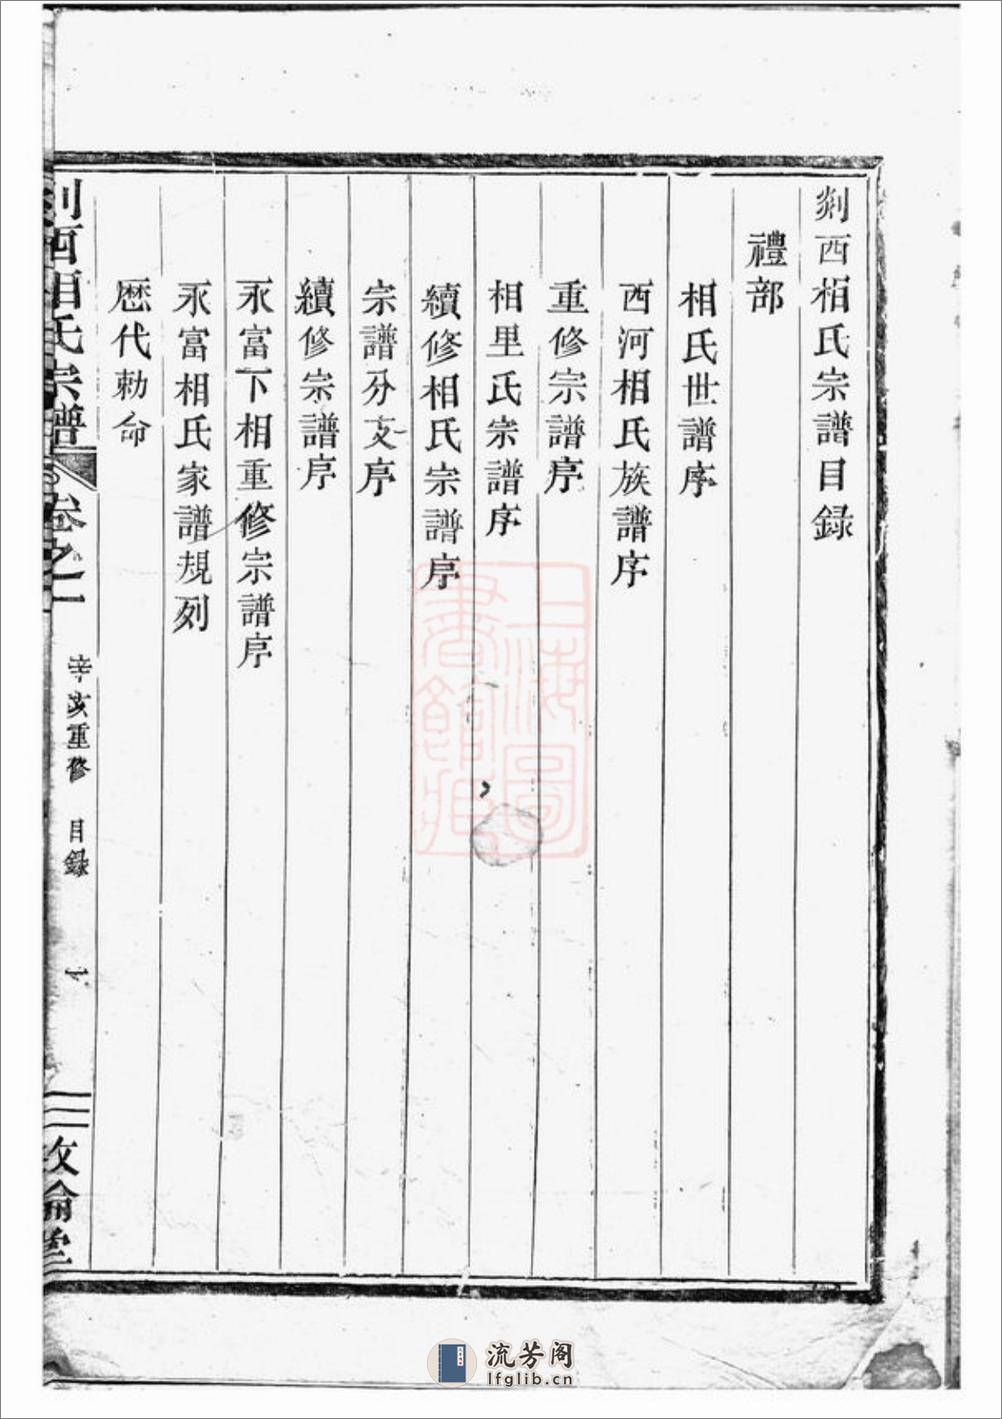 剡西相氏宗譜目録
禮部
相氏世譜序
西河相氏族譜序
重修宗譜序
相里氏宗譜序
續修相氏宗譜序
宗譜分支序
續修宗譜序
永富下相重修宗譜序
永富相氏家譜規列
歴代勅命
剡西相氏宗譜 卷之一 辛亥重修 目録 一 敦倫堂
上海圖書館藏
流芳阁
lfglib.cn